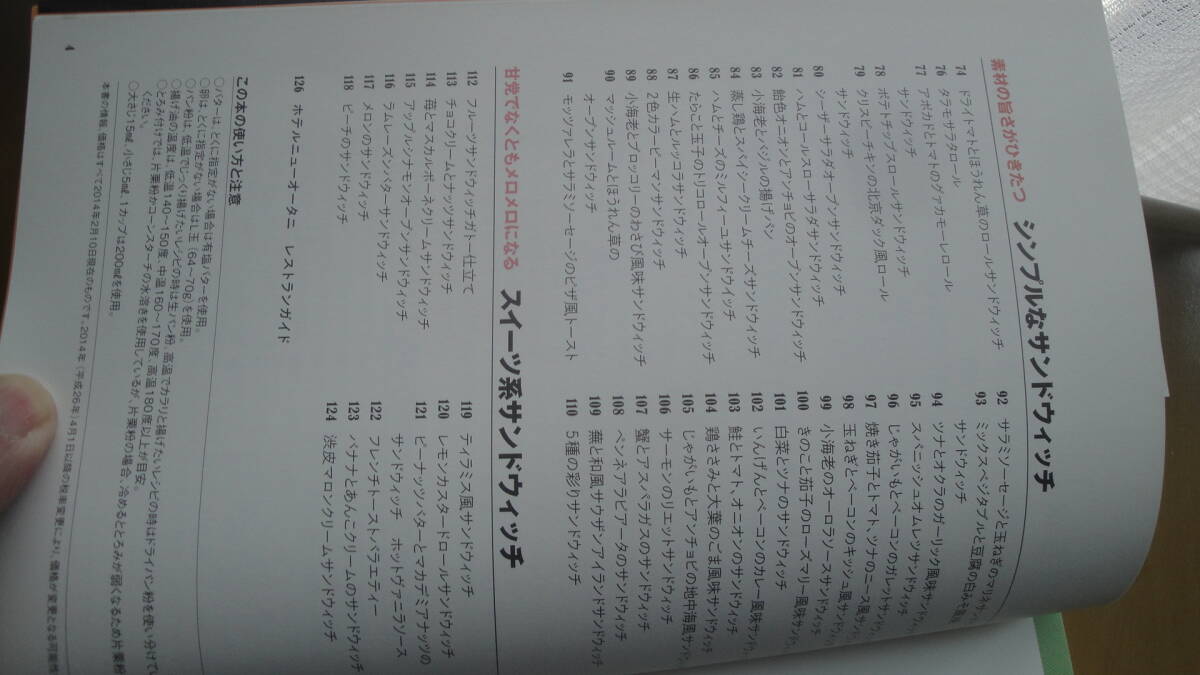 素材の旨さがひきたつ シンプルなサンドウィッチ
74 ドライトマトとほうれん草のロールサンドウィッチ
76 タラモサラタロール
77 アボカドとトマトのグァカモーレロール
サンドウィッチ
78 ポテトチップスロールサンドウィッチ
79 クリスピーチキンの北京ダック風ロール
サンドウィッチ
80 シーザーサラダオープンサンドウィッチ
81 ハムとコールスローサラダサンドウィッチ
82 飴色オニオンとアンチョビのオープンサンドウィッチ
83 小海老とバジルの揚げパン
84 蒸し鶏とスパイシークリームチーズサンドウィッチ
85 ハムとチーズのミルフィーユサンドウィッチ
86 たらこと玉子のトリコロールオープンサンドウィッチ
87 生ハムとルッコラサンドウィッチ
88 2色カラーピーマンサンドウィッチ
89 小海老とブロッコリーのわさび風味サンドウィッチ
90 マッシュルームとほうれん草の
オープンサンドウィッチ
91 モッツァレラとサラミソーセージのピザ風トースト
92 サラミソーセージと玉ねぎのマリネサ
93 ミックスベジタブルと豆腐の白みそ風味
サンドウィッチ
94 ツナとオクラのガーリック風味サンド
95 スパニッシュオムレツサンドウィッチ
96 じゃがいもとベーコンのガレットサンド
97 焼き茄子とトマト、ツナのニース風サン
98 玉ねぎとベーコンのキッシュ風サンド
99 小海老のオーロラソースサンドウィッチ
100 きのこと茄子のローズマリー風味サンド
101 白菜とツナのサンドウィッチ
102 いんげんとベーコンのカレー風味サンド
103 鮭とトマト、オニオンのサンドウィッチ
104 鶏ささみと大葉のごま風味サンドウィッチ
105 じゃがいもとアンチョビの地中海風サンド
106 サーモンのリエットサンドウィッチ
107 蟹とアスパラガスのサンドウィッチ
108 ペンネアラビアータのサンドウィッチ
109 蕪と和風サウザンアイランドサンドウィッチ
110 5種の彩りサンドウィッチ
甘党でなくともメロメロになる スイーツ系サンドウィッチ
112 フルーツサンドウィッチガトー仕立て
113 チョコクリームとナッツサンドウィッチ
114 苺とマスカルポーネクリームサンドウィッチ
115 アップルシナモンオープンサンドウィッチ
116 ラムレーズンバターサンドウィッチ
117 メロンのサンドウィッチ
118 ピーチのサンドウィッチ
119 ティラミス風サンドウィッチ
120 レモンカスタードロールサンドウィッチ
121 ピーナッツバターとマカデミアナッツの
サンドウィッチ ホットヴァニラソース
122 フレンチトーストバラエティー
123 バナナとあんこクリームのサンドウィッチ
124 渋皮マロンクリームサンドウィッチ
126 ホテルニューオータニ レストランガイド
この本の使い方と注意
○バターは、とくに指定がない場合は有塩バターを使用。
○卵は、とくに指定がない場合はL玉（64〜70g）を使用。
○パン粉は、低温でじっくり揚げたいレシピの時は生パン粉、高温でカラリと揚げたいレシピの時はドライパン粉を使い分けて
○揚げ油の温度は、低温140〜150度、中温160〜170度、高温180度以上が目安。
○とろみ付けでは、片栗粉かコーンスターチの水溶きを使用しているが、片栗粉の場合、冷めるととろみが弱くなるため片栗粉
ください。
○大さじ15㎖、小さじ5㎖、1カップは200㎖を使用。
本書の情報、価格はすべて2014年2月10日現在のものです。2014年（平成26年）4月1日以降の税率変更により、価格が変更となる可能性
4